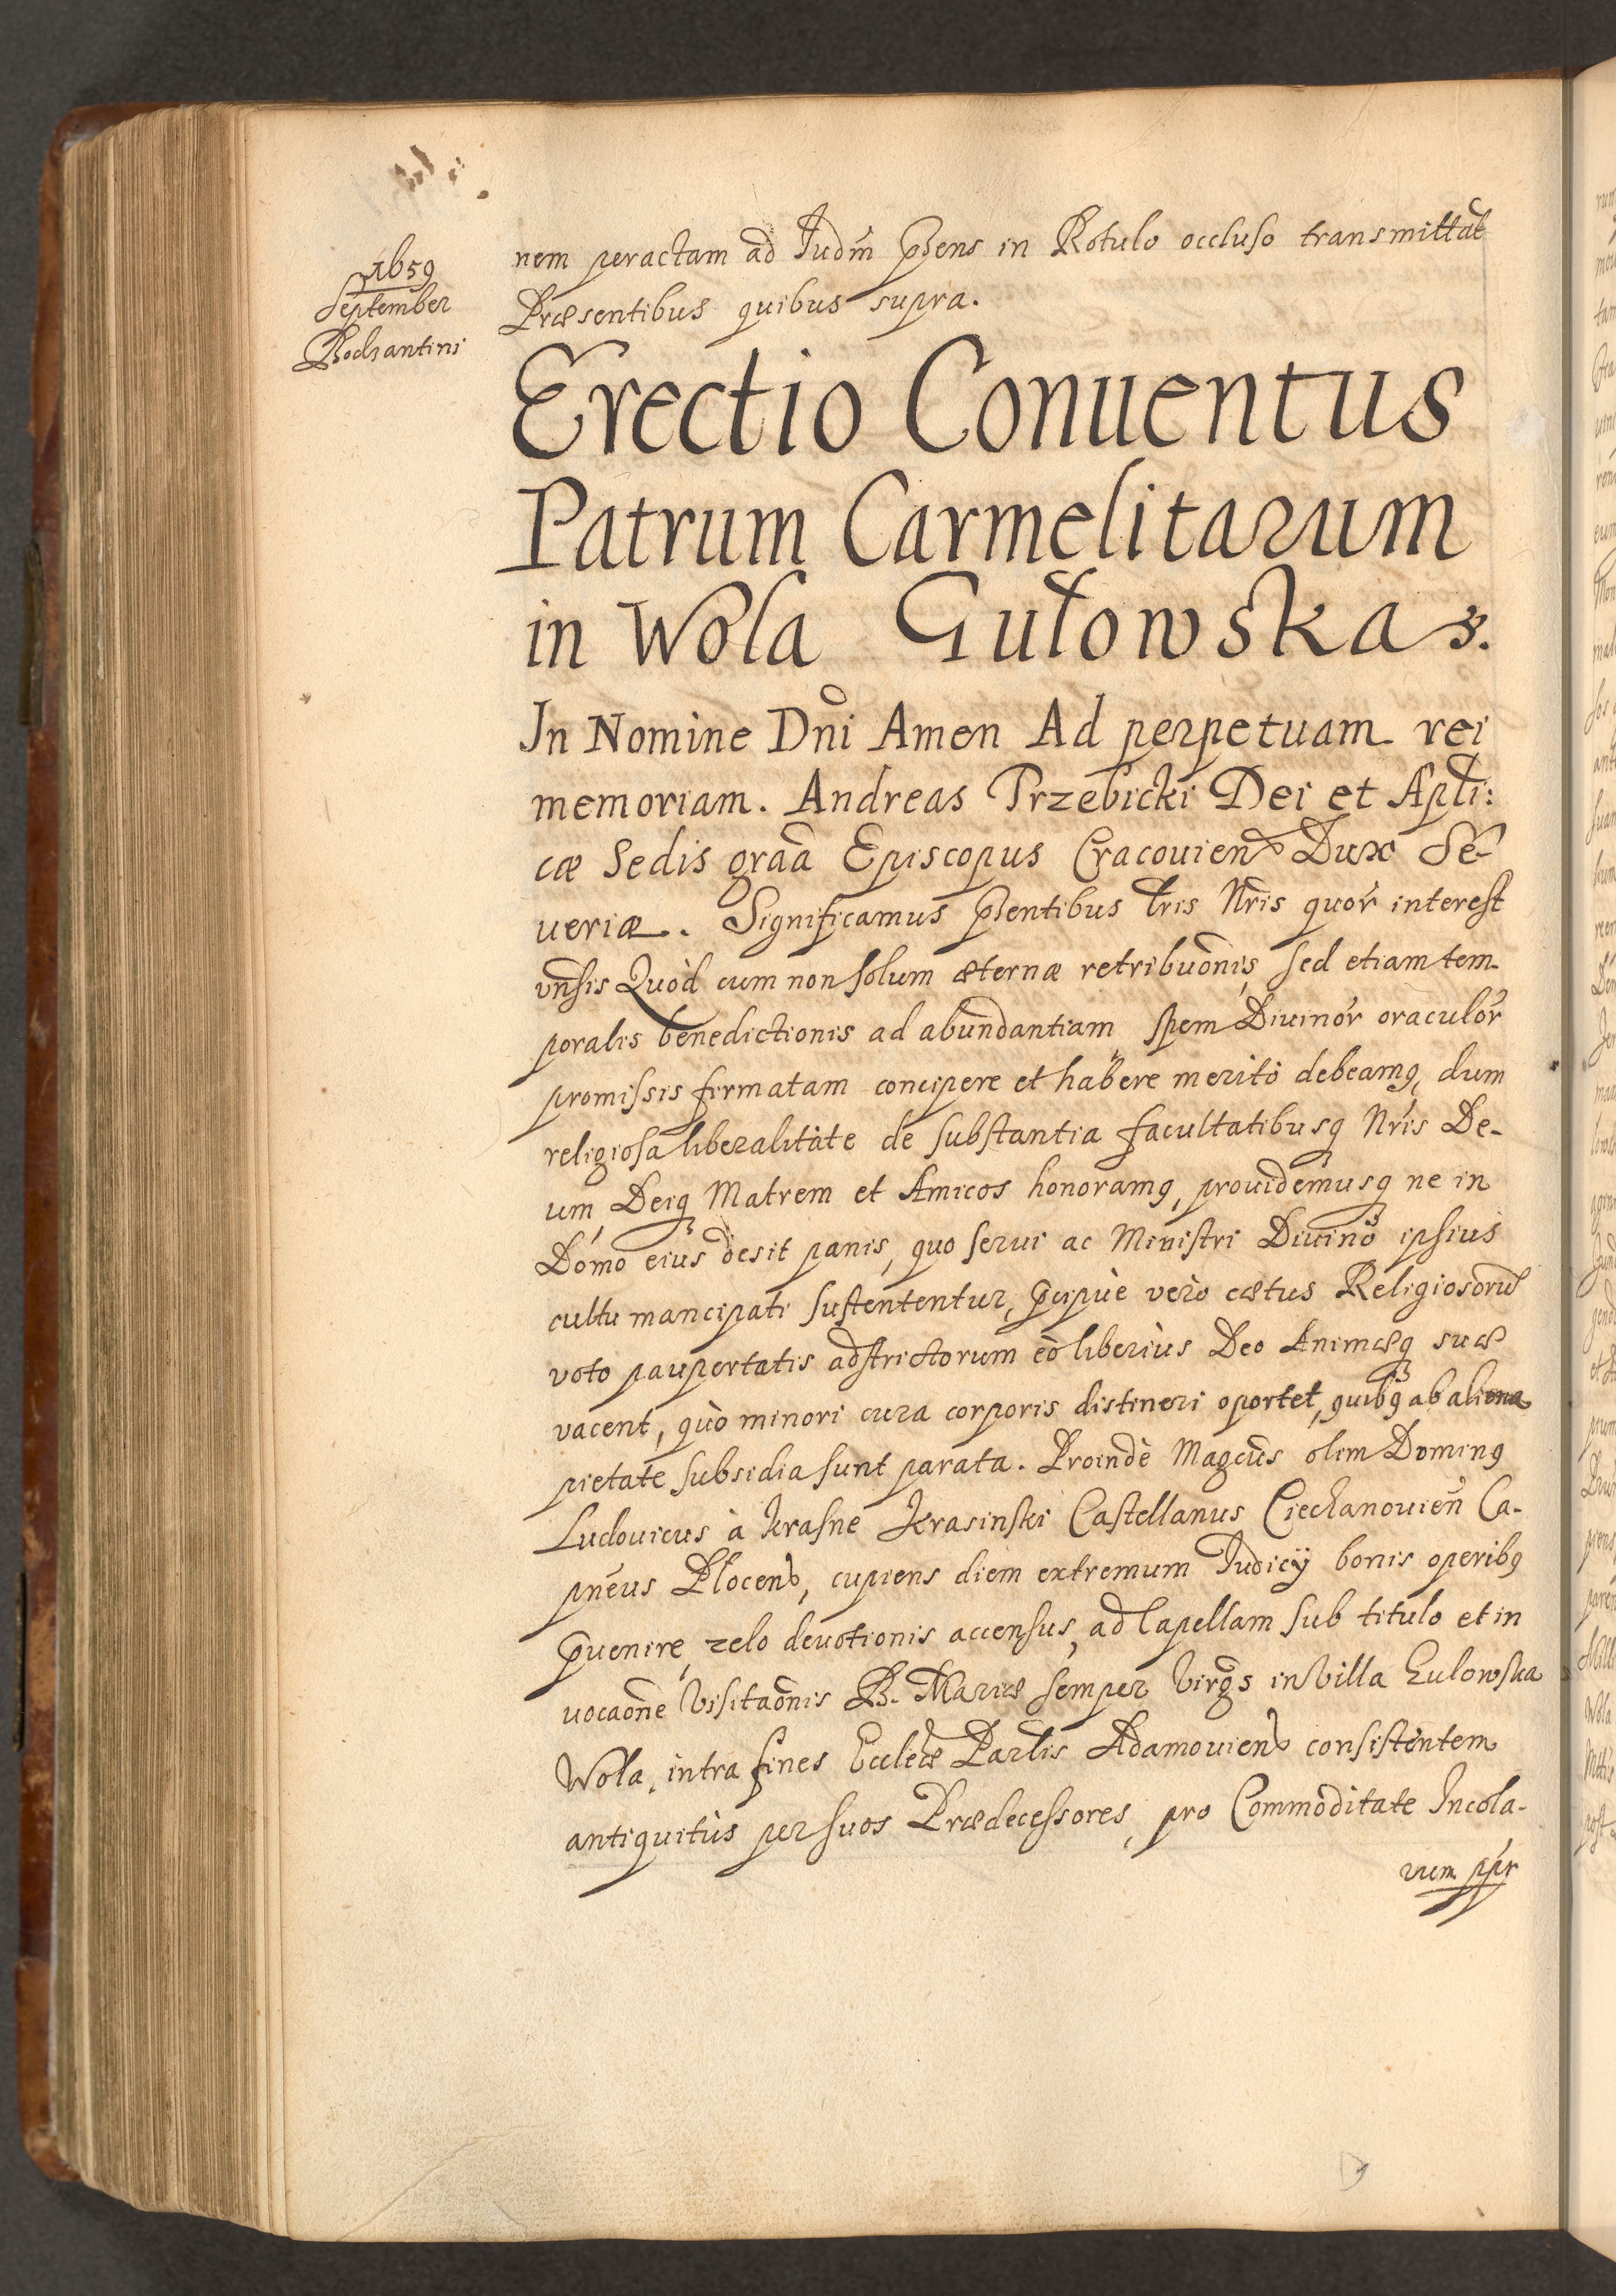 1659
September
Bodzantini
nem peractam ad Judm̃ p̃sens in Rotulo occluso transmittat
Præsentibus quibus supra.
Erectio Conuentus
Patrum Carmelitarum
in Wola Gułowska.
In Nomine Dñi Amen Ad perpetuam rei
memoriam. Andreas Trzebicki Dei et Apłi:
cæ Sedis grãa Episcopus Cracouien Dux Se-
ueriæ. Significamus p̃sentibus lr̃is Nr̃is quor̃ interest
vñsis Quòd cum non solum æternæ retribuõnis, sed etiam tem
poralis benedictionis ad abundantiam, spem Diuinor̃ oraculor̃
promissis firmatam concipere et habere meritò debeamq, dum
religiosa liberalitate de substantia facultatibusq Nr̃is De-
um, Deiq Matrem et Amicos honoramq, prouidemusq ne in
Domo eius desit panis, quo serui ac Ministri Diuino ipsius
cultu mancipati sustententur, p̃cipuè verò cætus Religiosorũ
voto paupertatis adstrictorum eò liberiùs Deo Animæq suæ
vacent, quò minori cura corporis distineri oportet, quibq ab aliena
pietate subsidia sunt parata. Proindè Magcũs olim Dominq
Ludouicus à Krasne Krasinski Castellanus Ciechanouieñ Ca-
pñeus Płocen, cupiens diem extremum Judicÿ bonis operibq
p̃uenire, zelo deuotionis accensus, ad Capellam sub titulo et in
uocaõne Visitaõnis B. Mariæ semper Virgs in Villa Gulowska
Wola, intra fines Eccleæ Parlis Adamouien consistentem
antiquitùs per suos Prædecessores, pro Commoditate Incola-
rum ppr